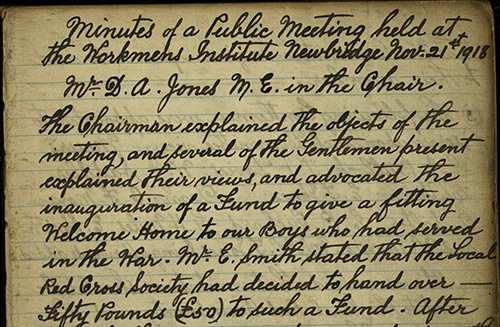 Minutes of a Public Meeting held at
the Workmens Institute Newbridge Nov. 21st 1918
Mr. D. A. Jones M. E. in the Chair.
The Chairman explained the objects of the
meeting, and several of the Gentlemen present
explained their views, and advocated the
inauguration of a Fund to give a fitting
Welcome Home to our Boys who had served
in the War. Mr. E. Smith stated that the Local
Red Cross Society had decided to hand over —
Fifty Pounds (£50) to such a Fund. After